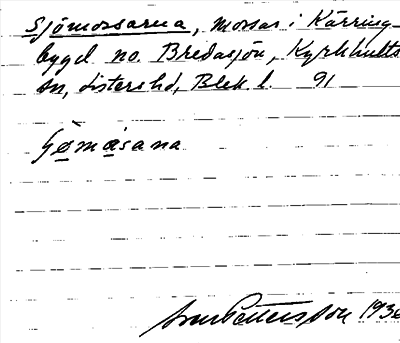 Sjömossarna, mossar i Kärring-
bygd no. Bredasjön, Kyrkhults
sn, Listers hd, Blek. l. 91
sjø̱må̱sana
Pettersson 1936